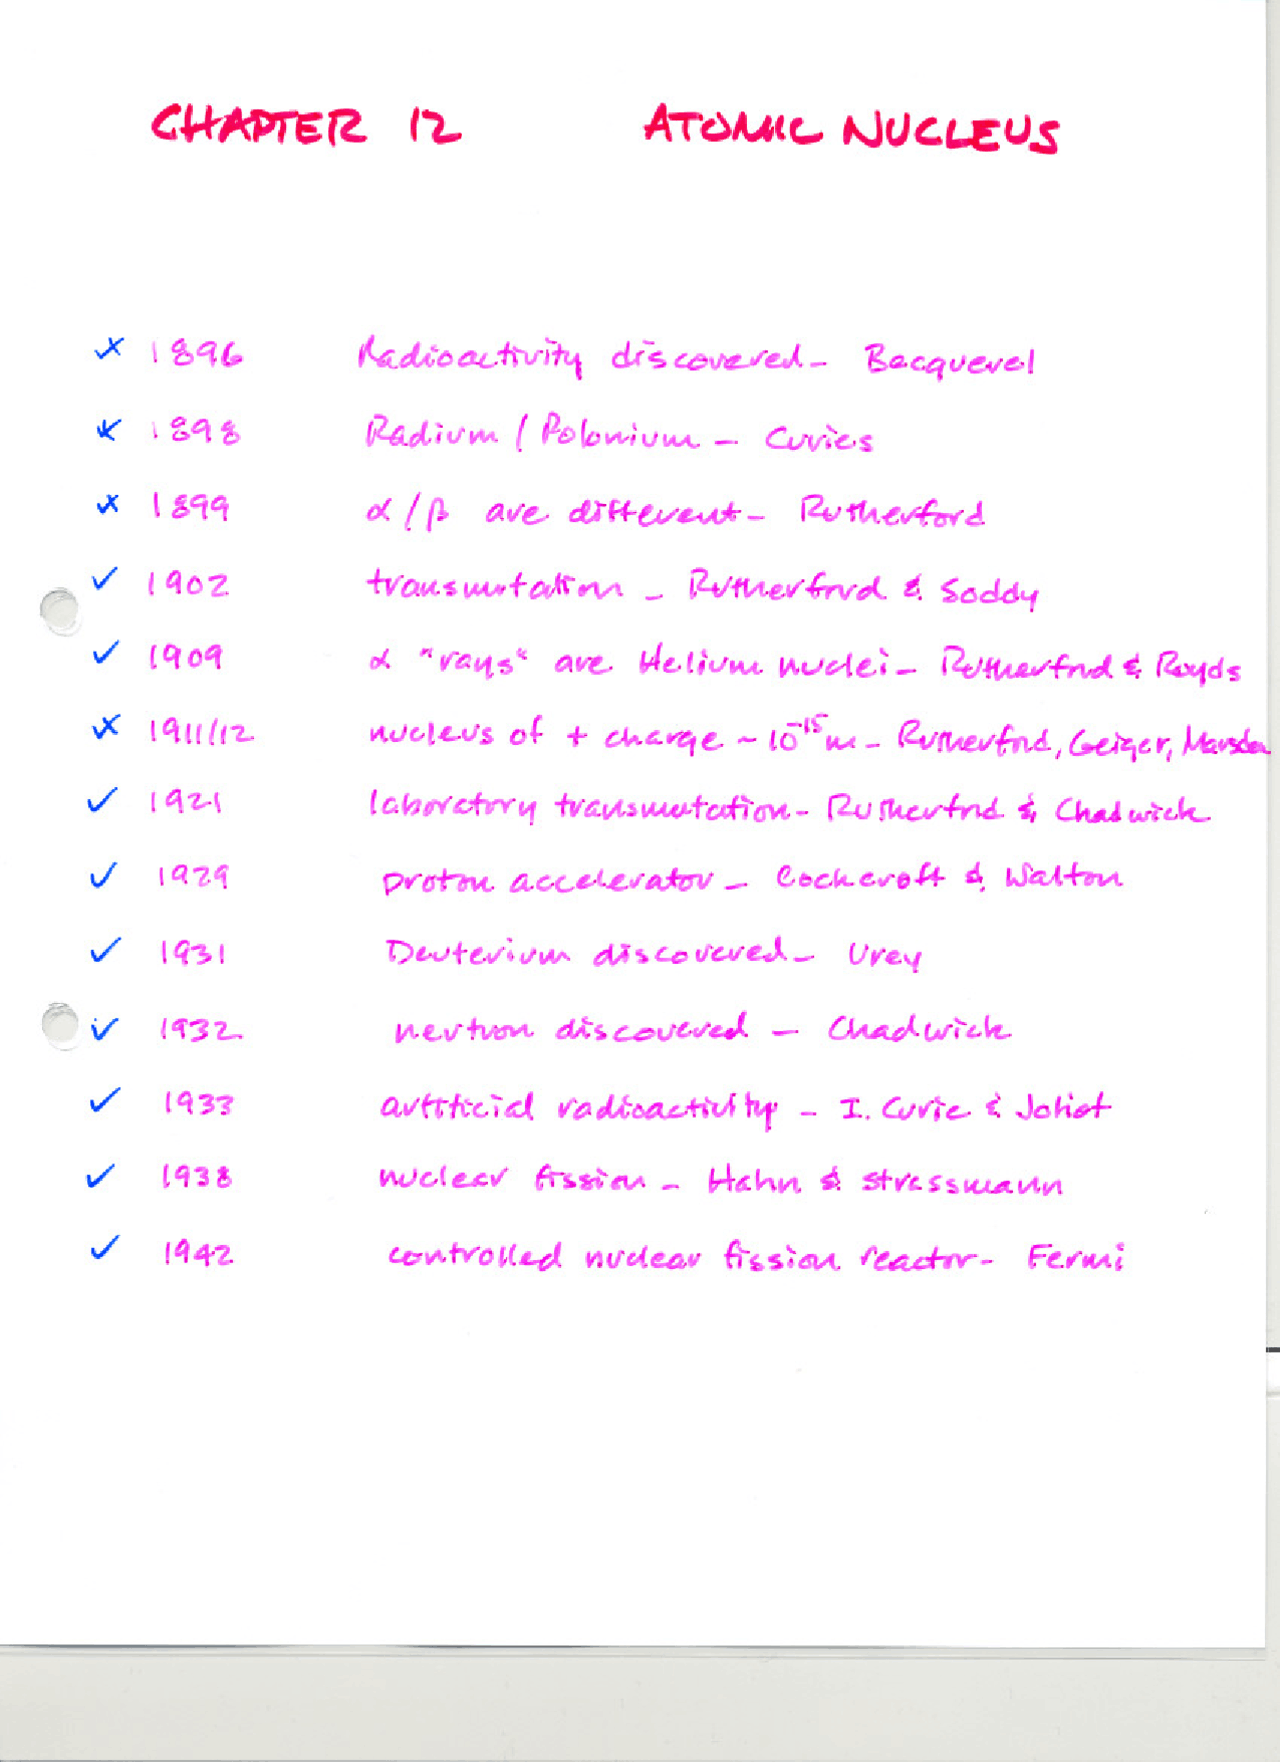 CHAPTER 12 ATOMIC NUCLEUS
1896 Radioactivity discovered - Becquerel
1898 Radium / Polonium - Curies
1899 α/β are different - Rutherford
✓ 1902 transmutation - Rutherford & Soddy
✓ 1909 α "rays" are Helium nuclei - Rutherford & Royds
1911/12 nucleus of + charge ~ 10⁻¹⁵ m - Rutherford, Geiger, Marsden
✓ 1921 laboratory transmutation - Rutherford & Chadwick
✓ 1929 proton accelerator - Cockcroft & Walton
✓ 1931 Deuterium discovered - Urey
✓ 1932 neutron discovered - Chadwick
✓ 1933 artificial radioactivity - I. Curie & Joliot
✓ 1938 nuclear fission - Hahn & Strassmann
✓ 1942 controlled nuclear fission reactor - Fermi